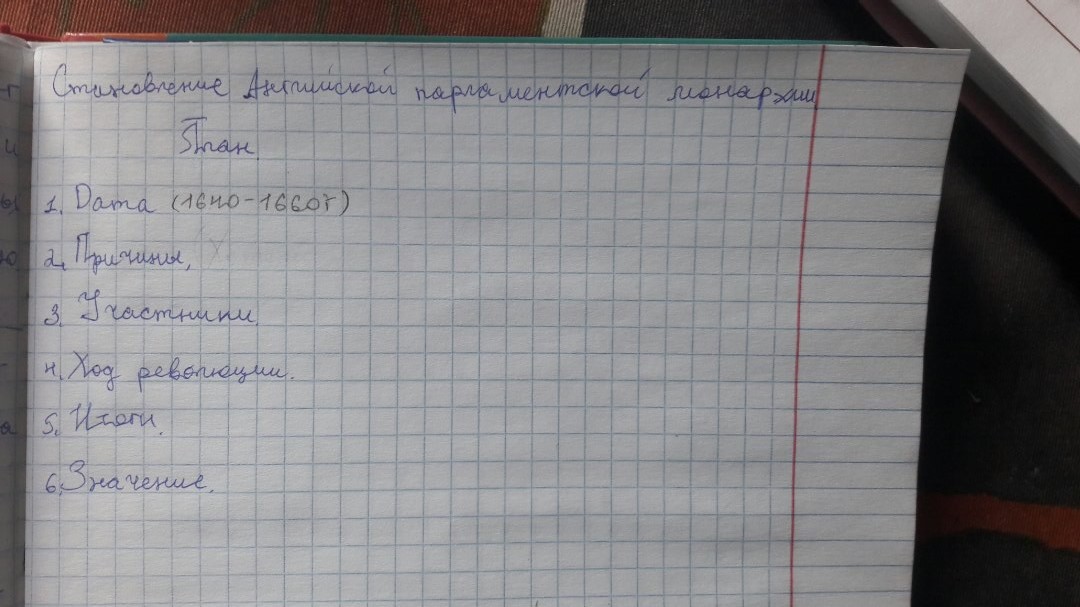 Становление Английской парламентской монархии
План.
1. Дата (1640-1660г)
2. Причины,
3. Участники.
4. Ход революции.
5. Итоги.
6. Значение.